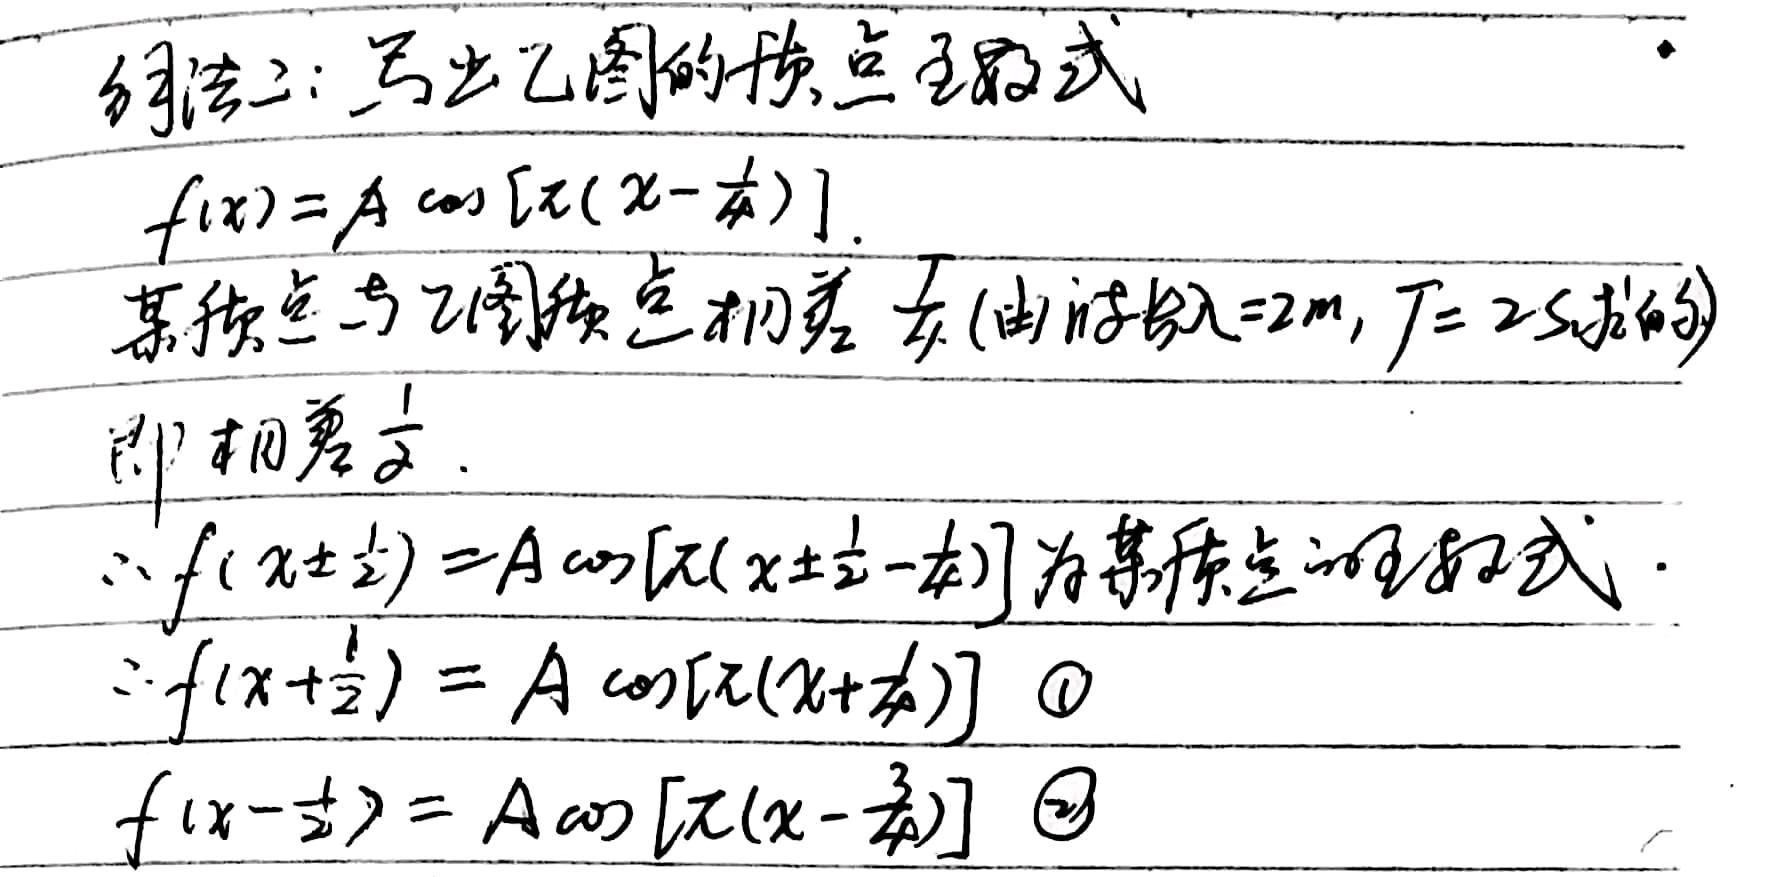 解法二:写出乙图的质点函数式
f(x)=A cos[π(x-1/4)].
某质点与乙图质点相差 T/4(由波长λ=2m,T=2s求的)
即相差1/2.
∴f(x±1/2)=A cos[π(x±1/2-1/4)]为某质点的函数式.
∴f(x+1/2)=A cos[π(x+1/4)] ①
f(x-1/2)=A cos[π(x-3/4)] ②